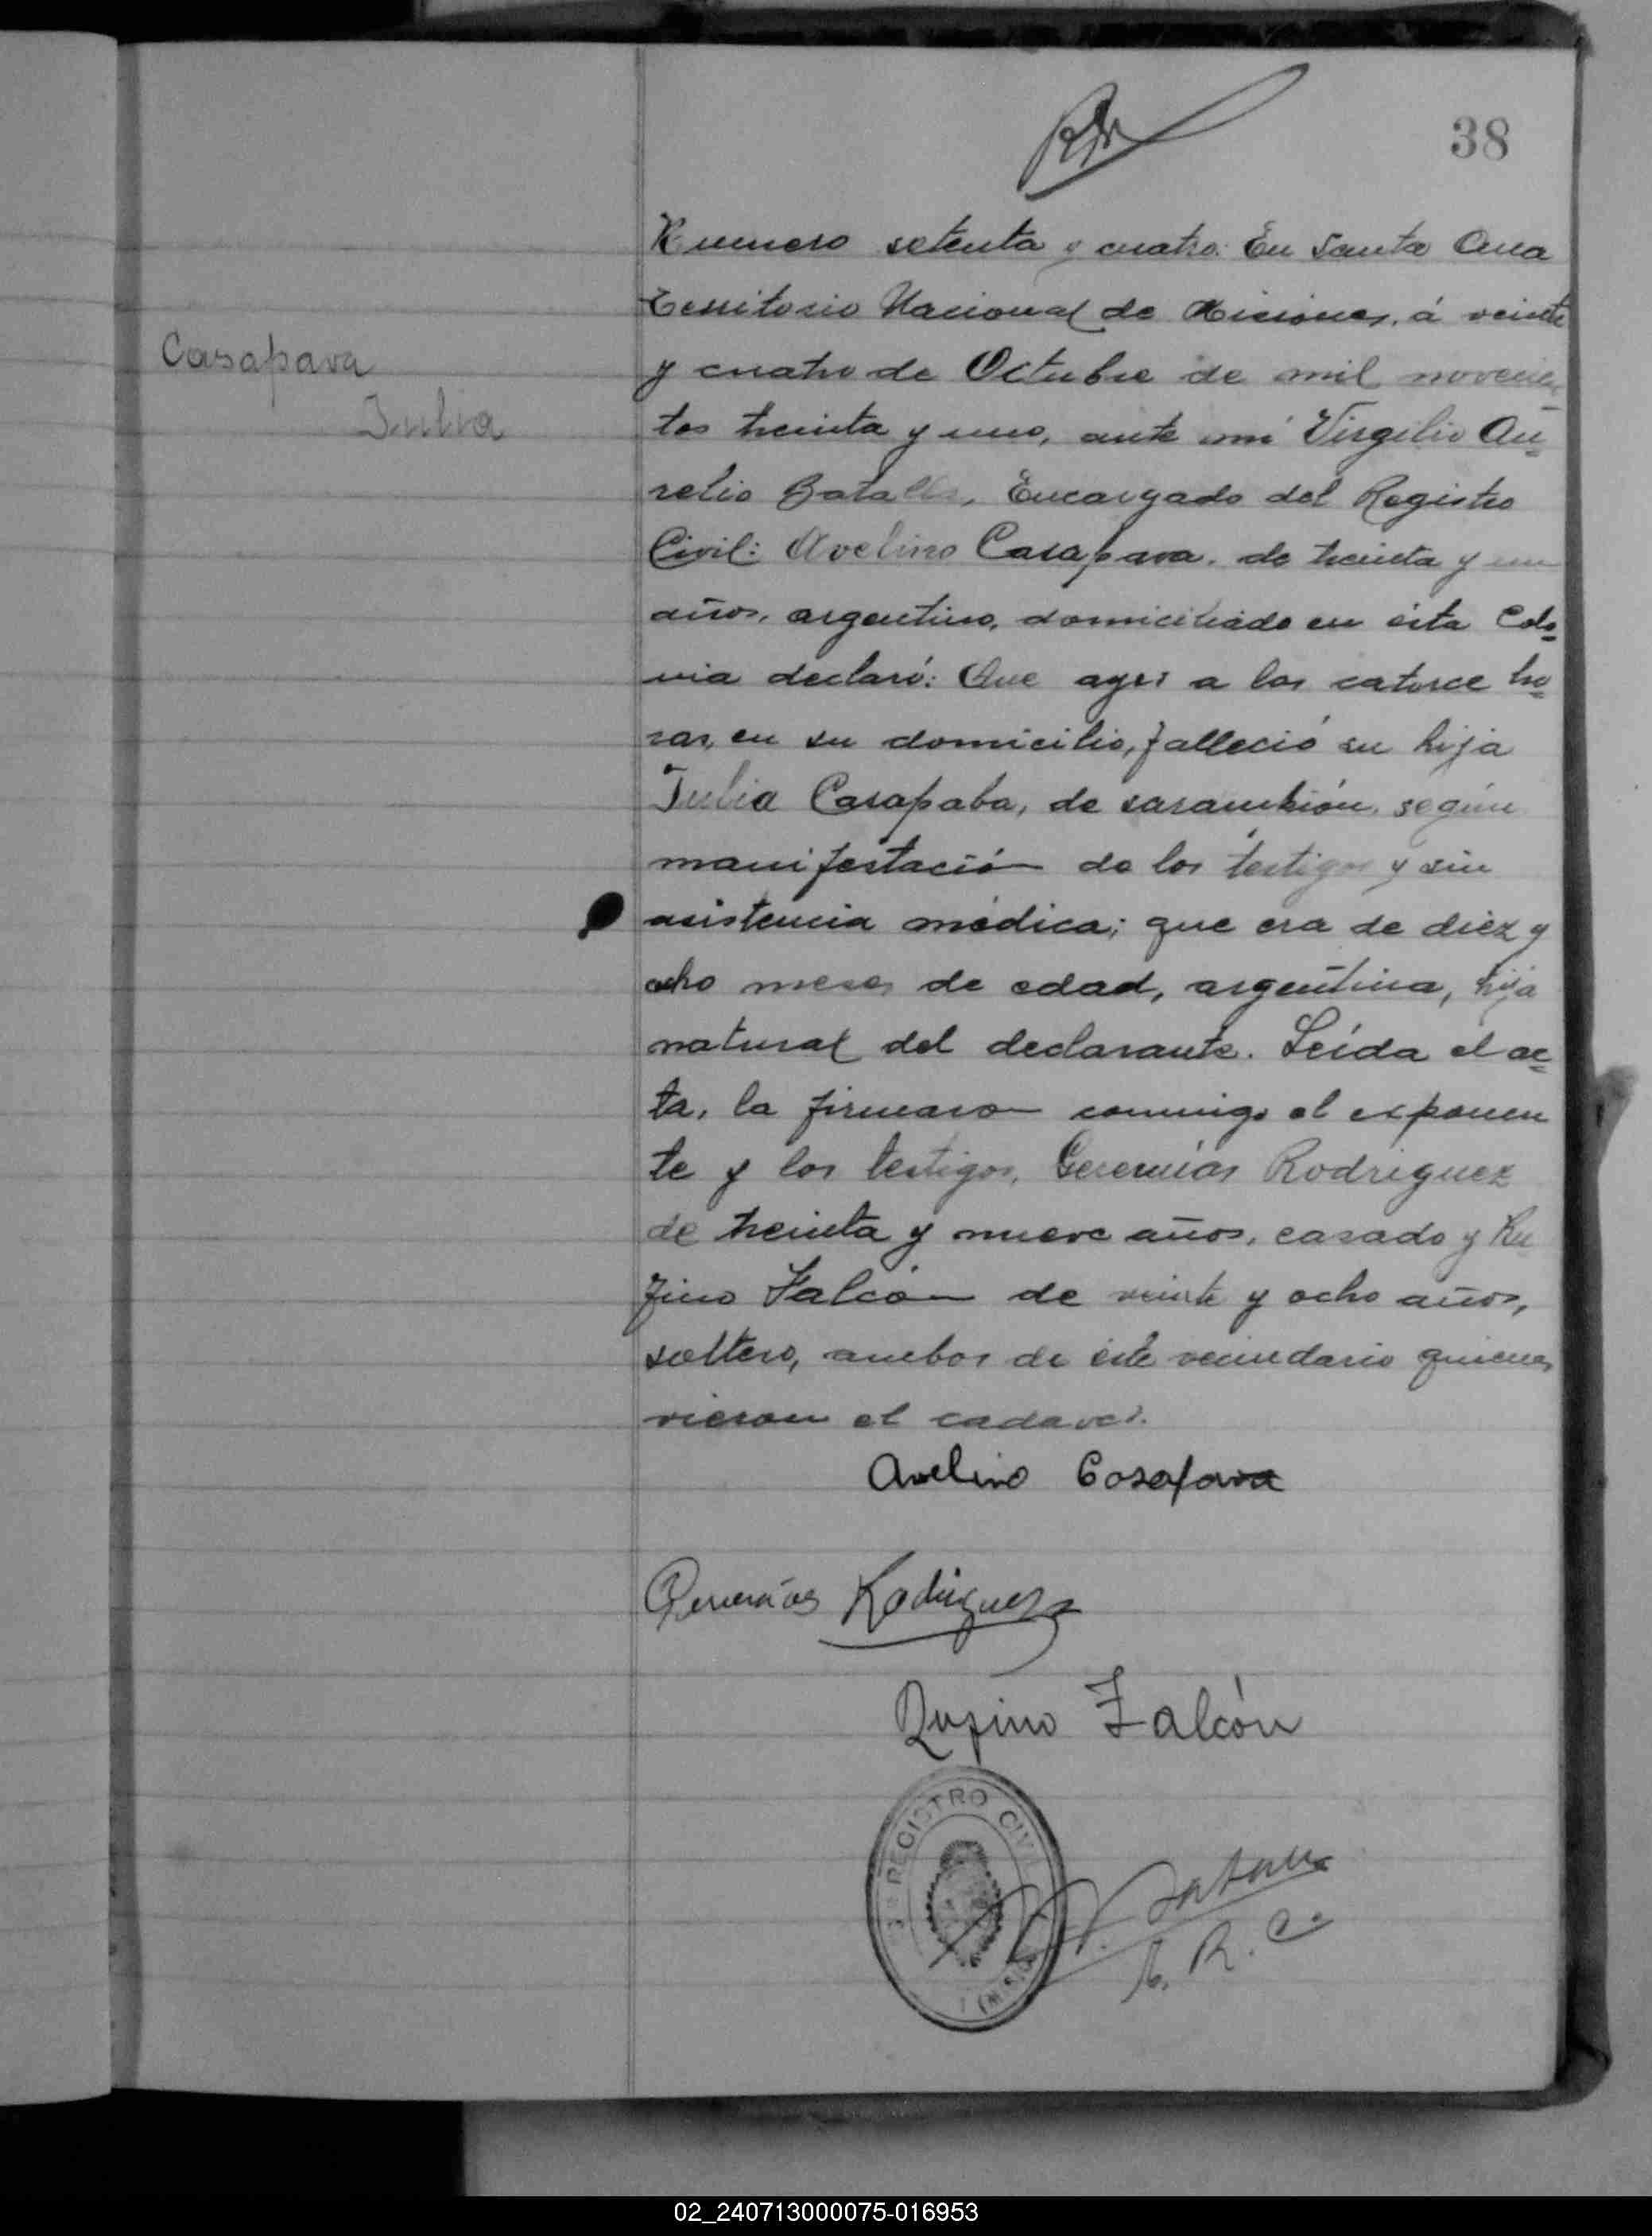 38
Casapava
Julia
Numero setenta y cuatro: En Santa Ana
Territorio Nacional de Misiones, á veinte
y cuatro de Octubre de mil novecien
tos treinta y uno, ante mí Virgilio Au-
relio Batalla, Encargado del Registro
Civil: Avelino Casapava, de treinta y un
años, argentino, domiciliado en ésta Colo-
nia declaró: Que ayer a las catorce ho-
ras, en su domicilio, falleció su hija
Julia Casapaba, de sarampión, según
manifestación de los testigos y sin
asistencia médica; que era de diez y
ocho meses de edad, argentina, hija
natural del declarante. Leída el ac-
ta, la firmaron conmigo el exponen
te y los testigos, Geremías Rodriguez
de treinta y nueve años, casado y Ru
fino Falcón de veinte y ocho años,
soltero, ambos de éste vecindario quienes
vieron el cadaver.
Avelino Casapava
Geremías Rodriguez
Rufino Falcón
REGISTRO CIVIL
V. Batalla
E. R. C.
02_240713000075-016953